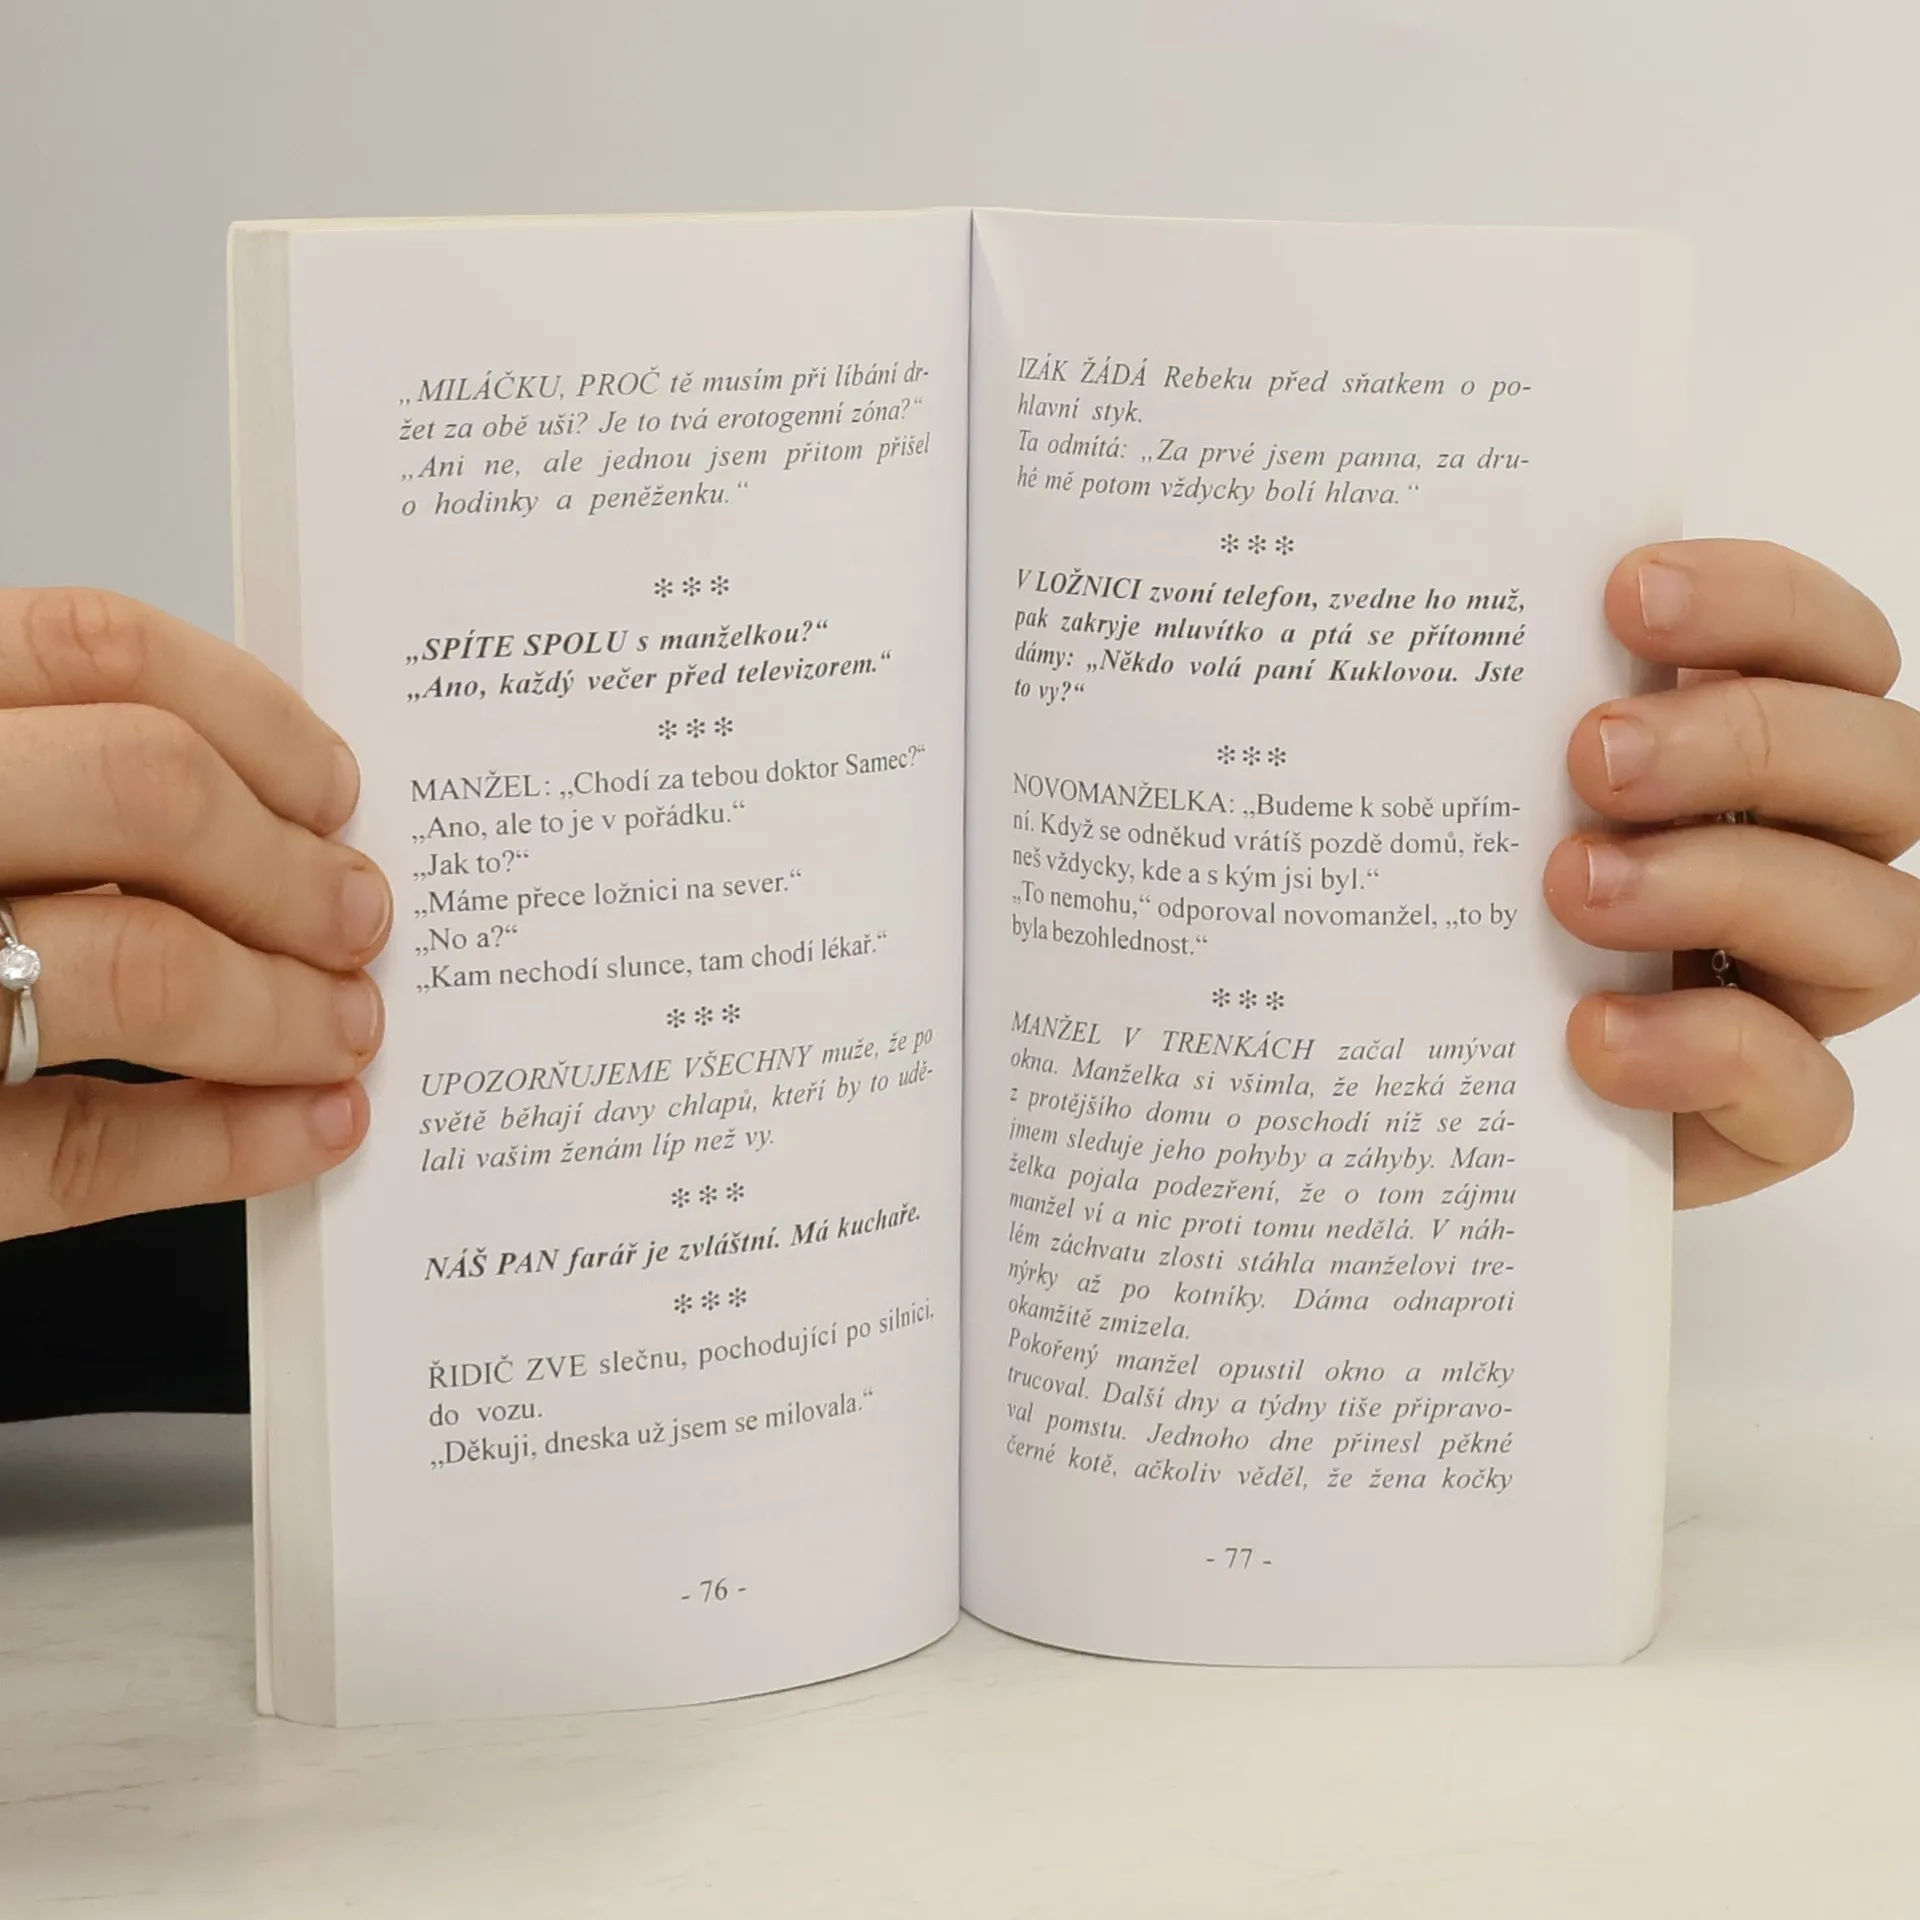 „MILÁČKU, PROČ tě musím při líbání dr-
žet za obě uši? Je to tvá erotogenní zóna?“
„Ani ne, ale jednou jsem přitom přišel
o hodinky a peněženku.“
***
„SPÍTE SPOLU s manželkou?“
„Ano, každý večer před televizorem.“
***
MANŽEL: „Chodí za tebou doktor Samec?“
„Ano, ale to je v pořádku.“
„Jak to?“
„Máme přece ložnici na sever.“
„No a?“
„Kam nechodí slunce, tam chodí lékař.“
***
UPOZORŇUJEME VŠECHNY muže, že po
světě běhají davy chlapů, kteří by to udě-
lali vašim ženám líp než vy.
***
NÁŠ PAN farář je zvláštní. Má kuchaře.
***
ŘIDIČ ZVE slečnu, pochodující po silnici,
do vozu.
„Děkuji, dneska už jsem se milovala.“
- 76 -
IZÁK ŽÁDÁ Rebeku před sňatkem o po-
hlavní styk.
Ta odmítá: „Za prvé jsem panna, za dru-
hé mě potom vždycky bolí hlava.“
***
V LOŽNICI zvoní telefon, zvedne ho muž,
pak zakryje mluvítko a ptá se přítomné
dámy: „Někdo volá paní Kuklovou. Jste
to vy?“
***
NOVOMANŽELKA: „Budeme k sobě upřím-
ní. Když se odněkud vrátíš pozdě domů, řek-
neš vždycky, kde a s kým jsi byl.“
„To nemohu,“ odporoval novomanžel, „to by
byla bezohlednost.“
***
MANŽEL V TRENKÁCH začal umývat
okna. Manželka si všimla, že hezká žena
z protějšího domu o poschodí níž se zá-
jmem sleduje jeho pohyby a záhyby. Man-
želka pojala podezření, že o tom zájmu
manžel ví a nic proti tomu nedělá. V náh-
lém záchvatu zlosti stáhla manželovi tre-
nýrky až po kotníky. Dáma odnaproti
okamžitě zmizela.
Pokořený manžel opustil okno a mlčky
trucoval. Další dny a týdny tiše připravo-
val pomstu. Jednoho dne přinesl pěkné
černé kotě, ačkoliv věděl, že žena kočky
- 77 -